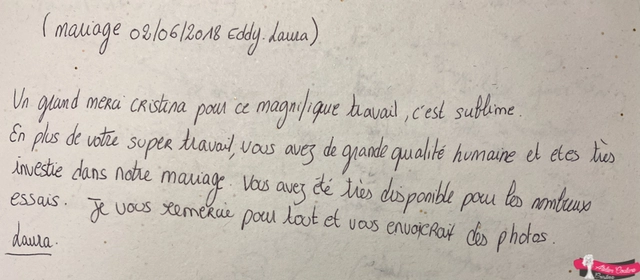 (mariage 02/06/2018 Eddy. Laura)
Un grand merci CRistina pour ce magnifique travail, c'est sublime.
En plus de votre super travail, vous avez de grande qualité humaine et etes très
investie dans notre mariage. Vous avez été très disponible pour les nombreux
essais. Je vous remercie pour tout et vous envoicrait des photos.
Laura.